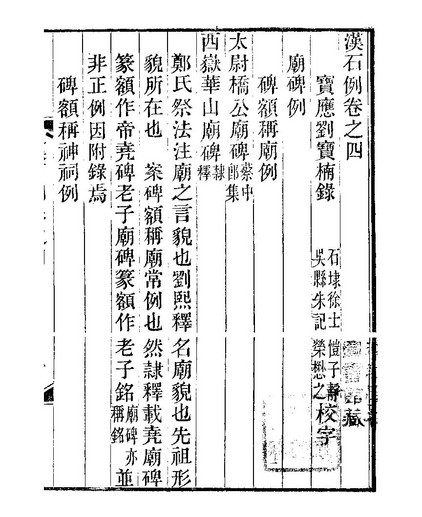 漢石例卷之四
寶應劉寶楠錄
石埭徐士愷子靜
吳縣朱記榮懋之校字
廟碑例
碑額稱廟例
太尉橋公廟碑蔡中郎集
西嶽華山廟碑隸釋
鄭氏祭法注廟之言貌也劉熙釋名廟貌也先祖形
貌所在也 案碑額稱廟常例也然隸釋載堯廟碑
篆額作帝堯碑老子廟碑篆額作老子銘廟碑亦稱銘並
非正例因附錄焉
碑額稱神祠例